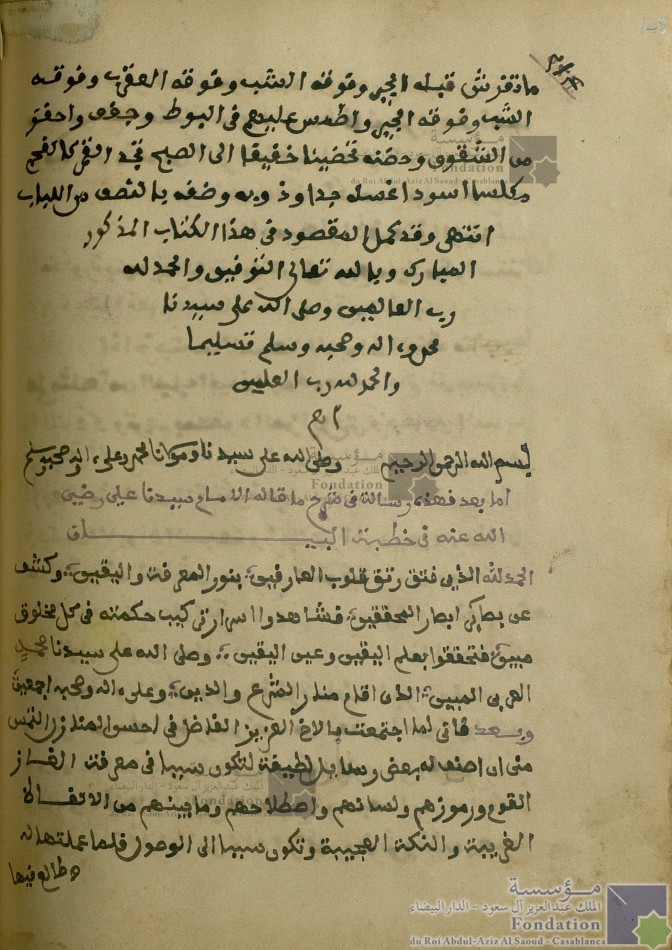 ما تفرش قبله الجير وفوقه الشب وفوقه العقرب وفوقه
الشب وفوقه الجير واطمس عليهم في البوط وجفف واحفظ
من الشقوق وحضنه تحضينا خفيفا الى الصبح تجد القمر كالفحم
مكلسا اسود اغسله جدا وذوبه وضفه بالنصف من اللباب
انتهى وقد كمل المقصود في هذا الكتاب المذكور
المبارك وبالله تعالى التوفيق والحمد لله
رب العالمين وصلى الله على سيدنا
محمد واله وصحبه وسلم تسليما
والحمد لله رب العلمين
بسم الله الرحمن الرحيم وصلى الله على سيدنا ومولانا محمد وعلى اله وصحبه وسلم
اما بعد فهذه رسالة في شرح ما قاله الامام سيدنا علي رضي
الله عنه في خطبة البيـــــان
الحمد لله الذي فتق رتق قلوب العارفين بنور المعرفة واليقين وكشف
عن بصائر ابصار المحققين فشاهدوا اسرار تركيب حكمته في كل مخلوق
مبين فتحققوا بعلم اليقين وعين اليقين وصلى الله على سيدنا محمد
العربي المبين الذي اقام منار الشرع والدين وعلى اله وصحبه اجمعين
وبعد فاني لما اجتمعت بالاخ العزيز الفاضل في احسن المنازل التمس
مني ان اصنف له بعض رسايل لطيفة لتكون سببا في معرفة الغاز
القوم ورموزهم ولسانهم واصطلاحهم وما بينهم من الالفاظ
الغريبة والنكة العجيبة وتكون سببا الى الوصول فلما عملتها له
وطالع فيها
مؤسسة
الملك عبد العزيز آل سعود - الدار البيضاء
Fondation
du Roi Abdul-Aziz Al Saoud - Casablanca